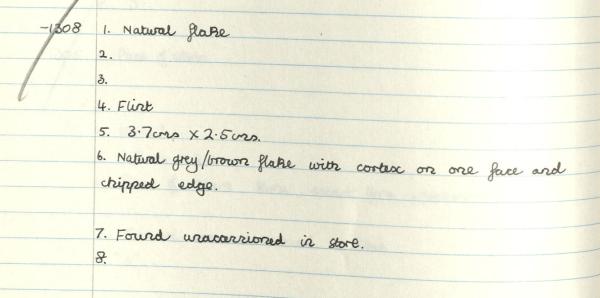 -1308 1. Natural flake
2.
3.
4. Flint
5. 3.7cms x 2.5cms.
6. Natural grey/brown flake with cortex on one face and
chipped edge.
7. Found unaccessioned in store.
8.